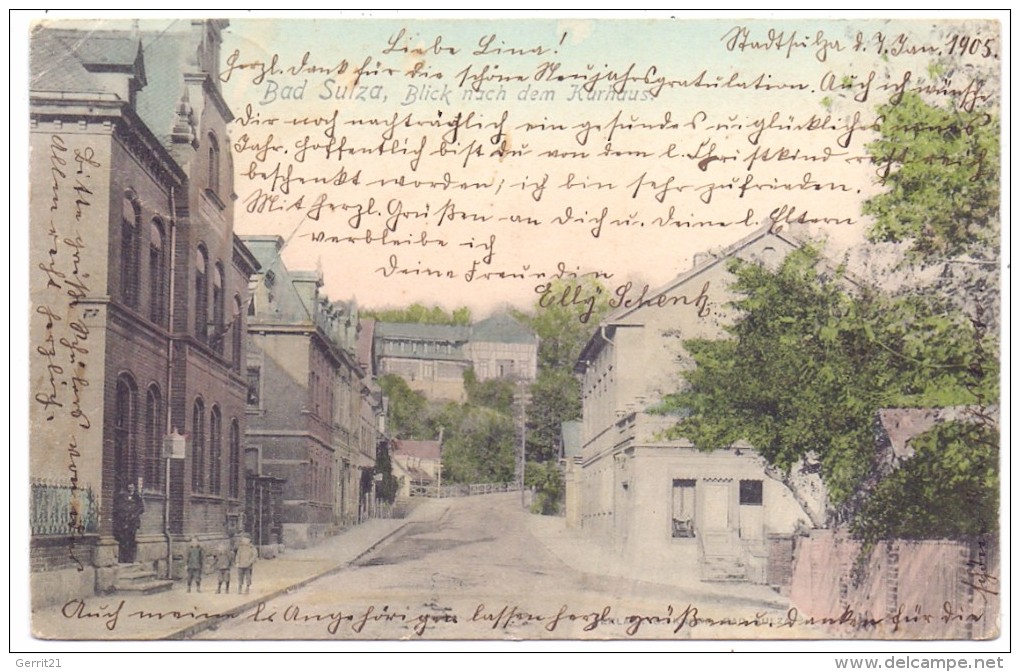 Stadtsulza d. 7. Jan. 1905.
Liebe Lina!
Herzl. Dank für die schöne Neujahrsgratulation. Auch ich wünsche
Bad Sulza, Blick nach dem Kurhaus.
Dir noch nachträglich ein gesundes u. glückliches neues
Jahr. Hoffentlich bist Du von dem l. Christkind recht reich
beschenkt worden, ich bin sehr zufrieden.
Mit herzl. Grüßen an Dich u. Deine l. Eltern
verbleibe ich
Deine Freundin
Elly Schenk
Auch meine ls Angehörigen lassen herzl grüßen u danken für die
Bitte grüße
Allen recht herzlich.
Gerrit21
delcampe.net